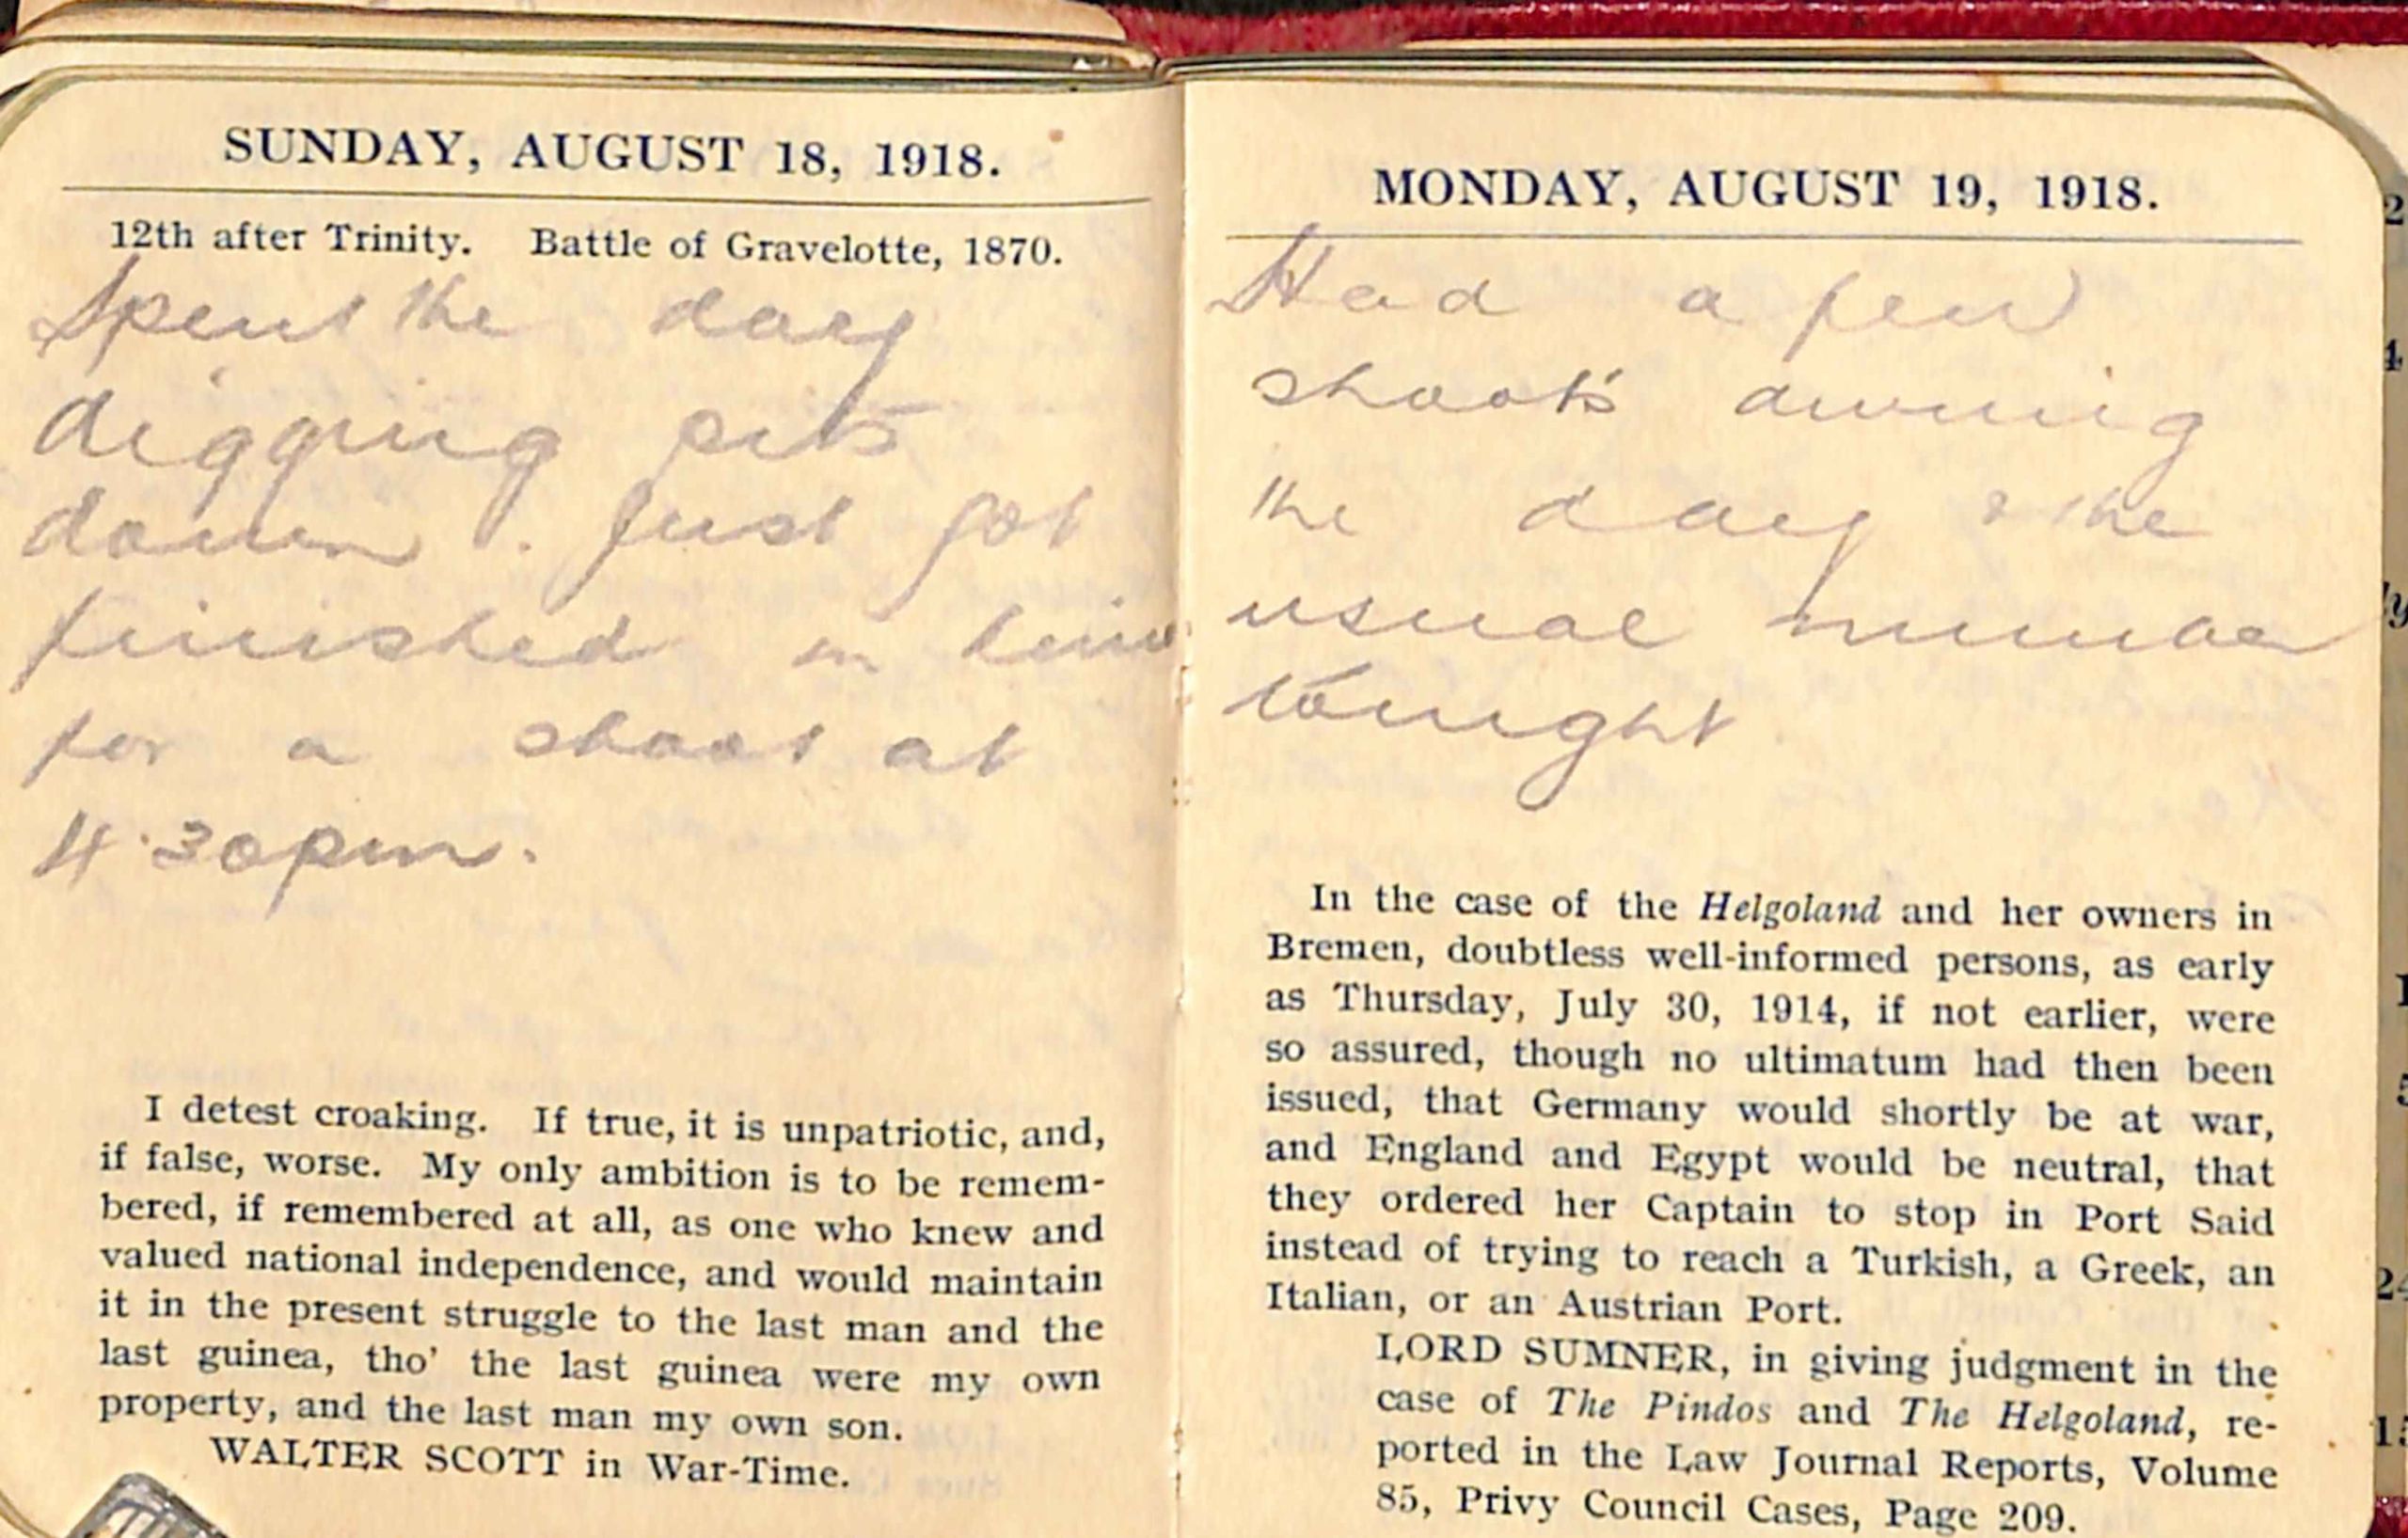 SUNDAY, AUGUST 18, 1918.
12th after Trinity. Battle of Gravelotte, 1870.
Spent the day
digging pits
down. Just got
finished in time
for a shoot at
4.30pm.
I detest croaking. If true, it is unpatriotic, and,
if false, worse. My only ambition is to be remem-
bered, if remembered at all, as one who knew and
valued national independence, and would maintain
it in the present struggle to the last man and the
last guinea, tho' the last guinea were my own
property, and the last man my own son.
WALTER SCOTT in War-Time.
MONDAY, AUGUST 19, 1918.
Had a few
shoots during
the day & the
usual number
tonight
In the case of the Helgoland and her owners in
Bremen, doubtless well-informed persons, as early
as Thursday, July 30, 1914, if not earlier, were
so assured, though no ultimatum had then been
issued, that Germany would shortly be at war,
and England and Egypt would be neutral, that
they ordered her Captain to stop in Port Said
instead of trying to reach a Turkish, a Greek, an
Italian, or an Austrian Port.
LORD SUMNER, in giving judgment in the
case of The Pindos and The Helgoland, re-
ported in the Law Journal Reports, Volume
85, Privy Council Cases, Page 209.